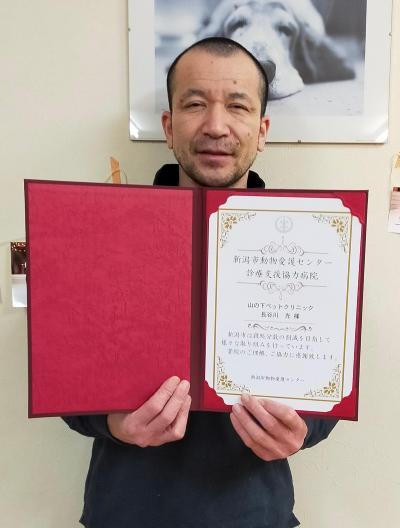 新潟市動物愛護センター
診療支援協力病院
山の下ペットクリニック
長谷川 先 様
新潟市は殺処分数の削減を目指して
様々な取り組みを行っています。
貴院のご理解、ご協力に感謝致します。
新潟市動物愛護センター